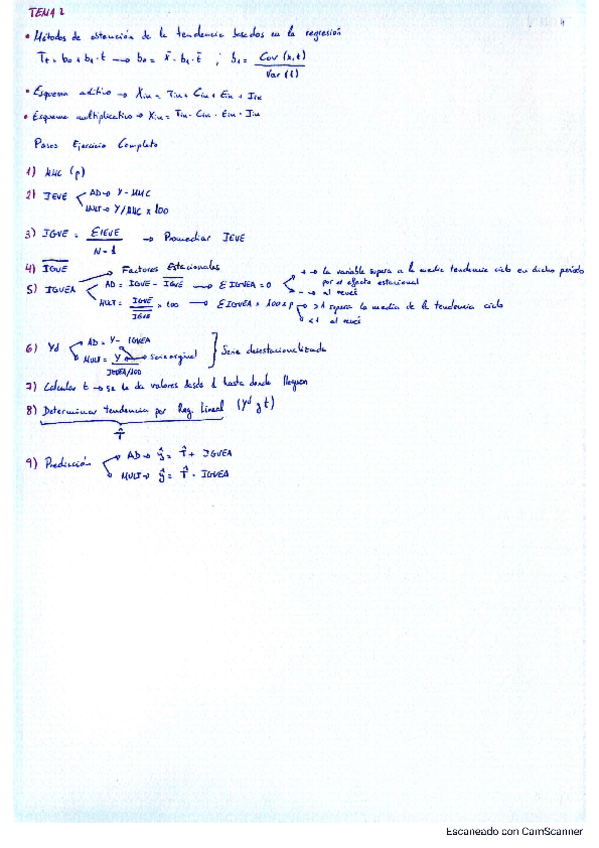 TEMA 2
• Métodos de obtención de la tendencia basados en la regresión
Tt = b0 + b1 · t → b0 = x̄ - b1 · t̄ ; b1 = Cov (x,t) / Var (t)
• Esquema aditivo → Xik = Tik + Cik + Eik + Iik
• Esquema multiplicativo → Xik = Tik · Cik · Eik · Iik
Pasos Ejercicio Completo
1) MMC (p)
2) IEVE
AD → Y - MMC
MULT → Y/MMC x 100
3) IGVE = ΣIEVE / N-1 → Promediar IEVE
4) IGVE
Factores Estacionales
5) IGVEA
AD = IGVE - IGVE → ΣIGVEA = 0
+ → la variable supera a la media tendencia ciclo en dicho periodo
por el efecto estacional
- → al revés
MULT = IGVE / IGVE x 100 → ΣIGVEA = 100 x p
>1 supera la media de la tendencia ciclo
<1 al revés
6) Yd
AD = Y - IGVEA
MULT = Y / IGVEA/100
Serie original
Serie desestacionalizada
7) Calcular t → se le da valores desde 1 hasta donde lleguen
8) Determinar tendencia por Reg. Lineal (Yd y t)
T̂
9) Predicción
AD → ŷ = T̂ + IGVEA
MULT → ŷ = T̂ · IGVEA
Escaneado con CamScanner